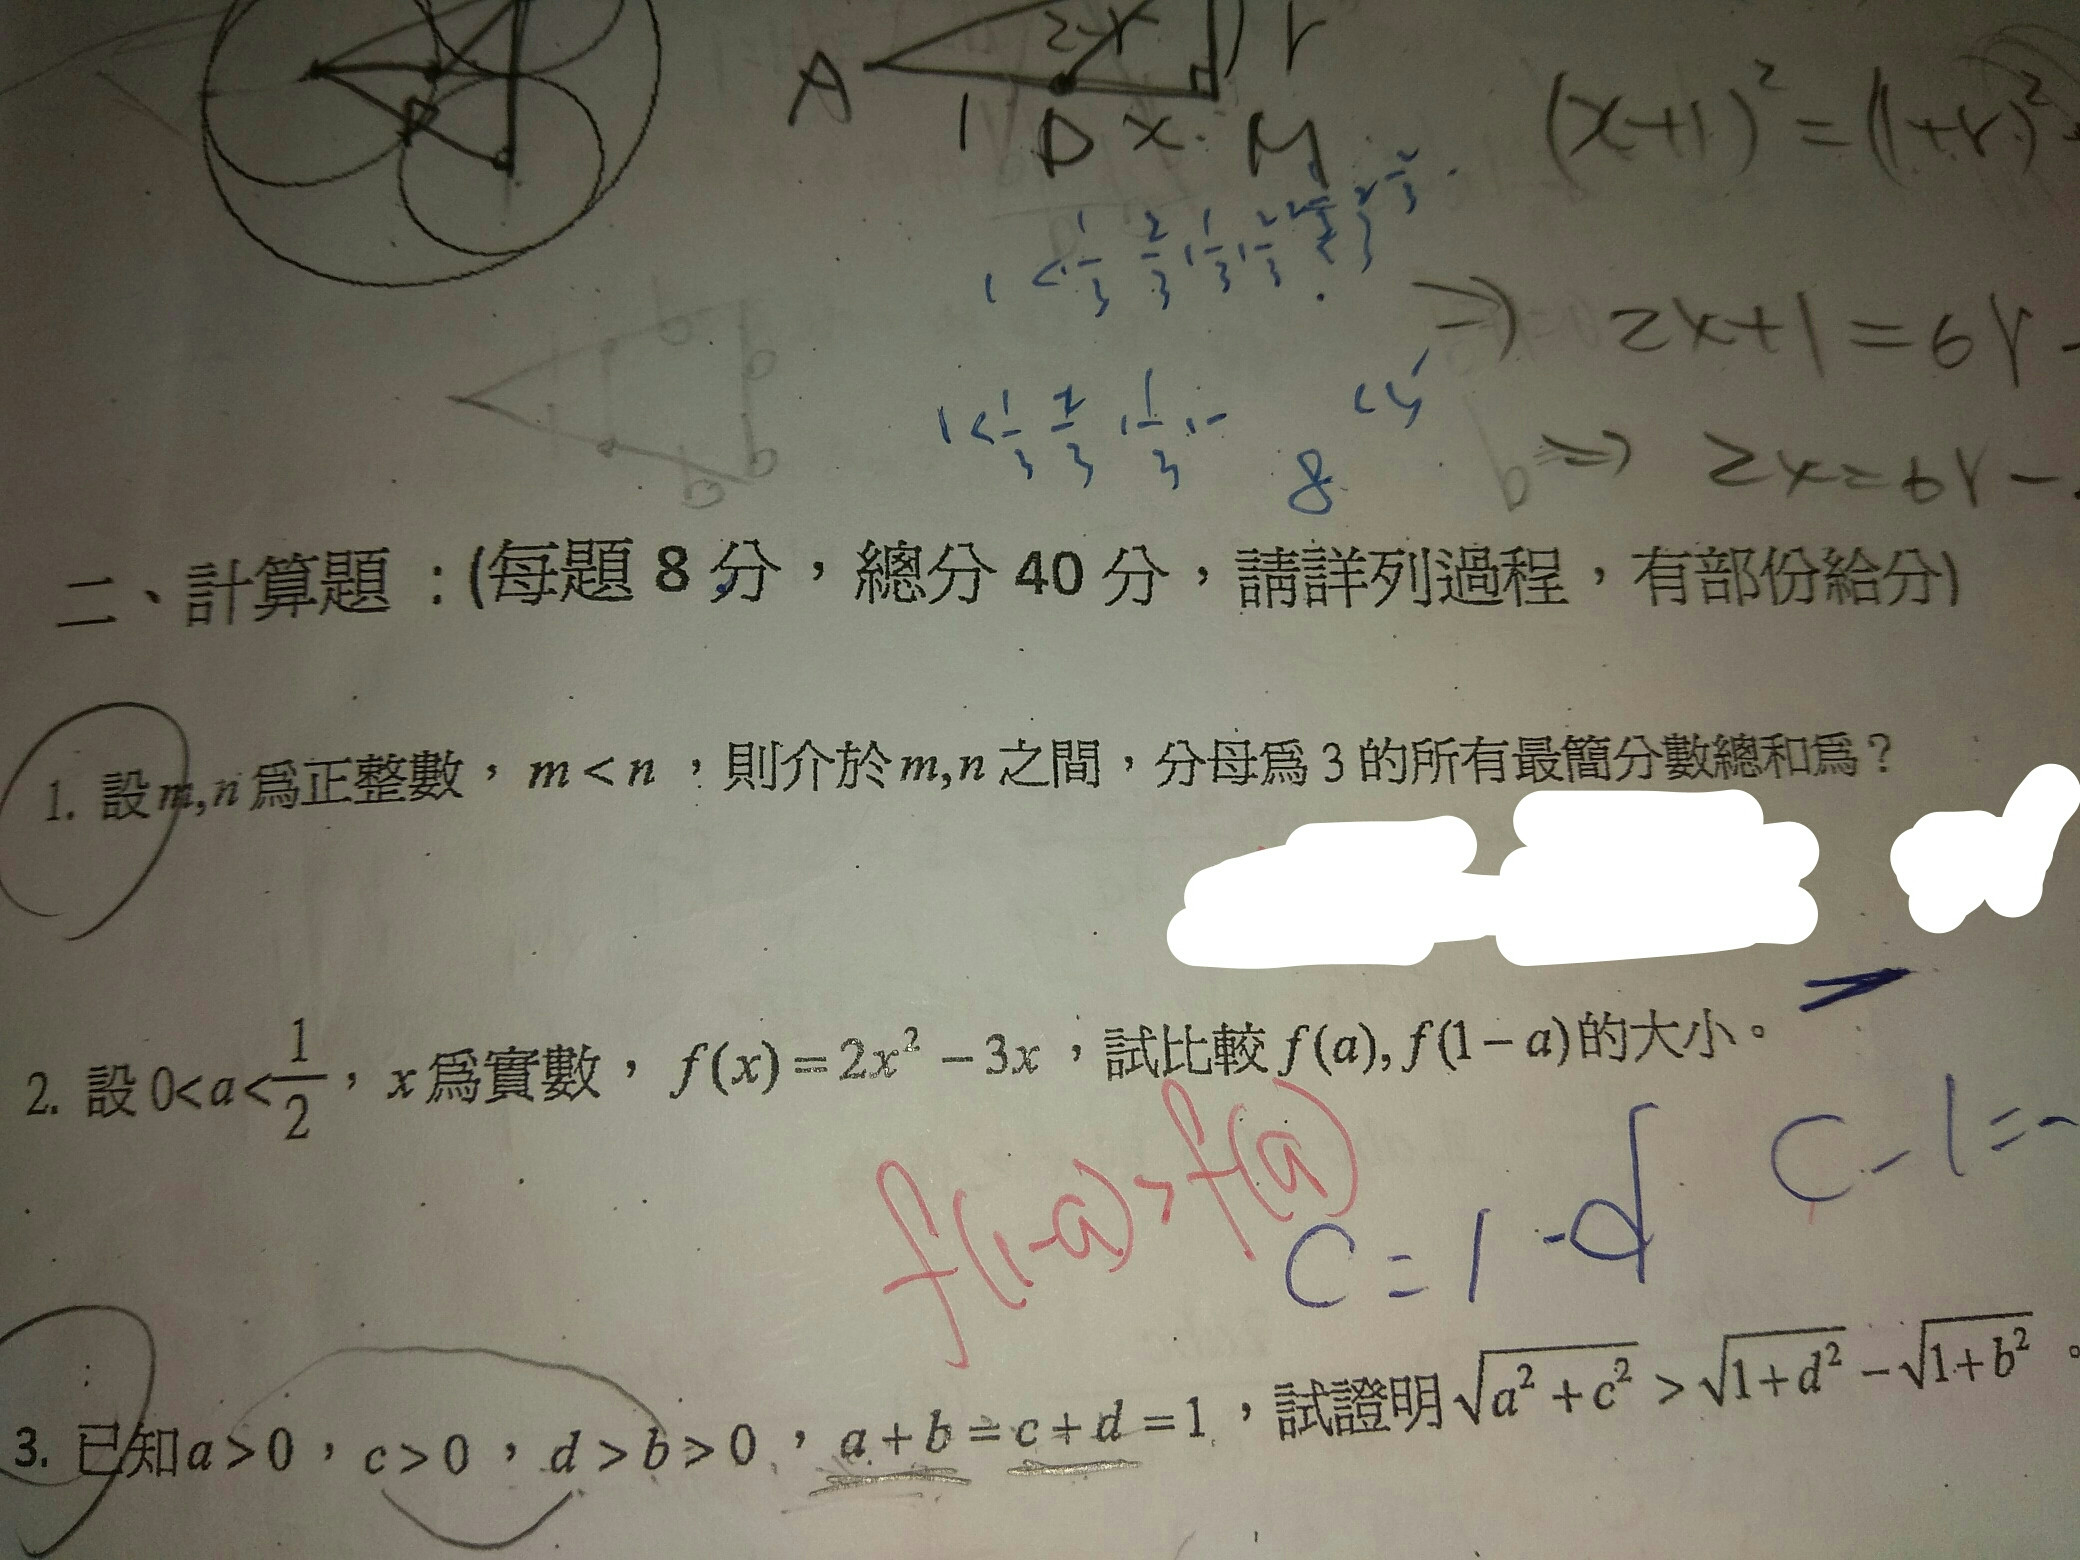 2-x r
A 1 D x M
(x+1)² = (1+r)²
1 < 1/3 2/3 1 1/3 1 2/3
⇒ 2x+1=6r-
1 < 1/3 2/3 , 1/3 , -
8
⇒ 2x=6r-
二、計算題:(每題 8 分,總分 40 分,請詳列過程,有部份給分)
1. 設 m,n 爲正整數, m<n ,則介於 m,n 之間,分母爲 3 的所有最簡分數總和爲?
2. 設 0<a<1/2, x 爲實數, f(x)=2x²-3x ,試比較 f(a), f(1-a) 的大小。
f(1-a)>f(a)
c=1-d c-1=-
3. 已知 a>0,c>0,d>b>0,a+b=c+d=1,試證明 √(a²+c²) > √(1+d²) - √(1+b²)。